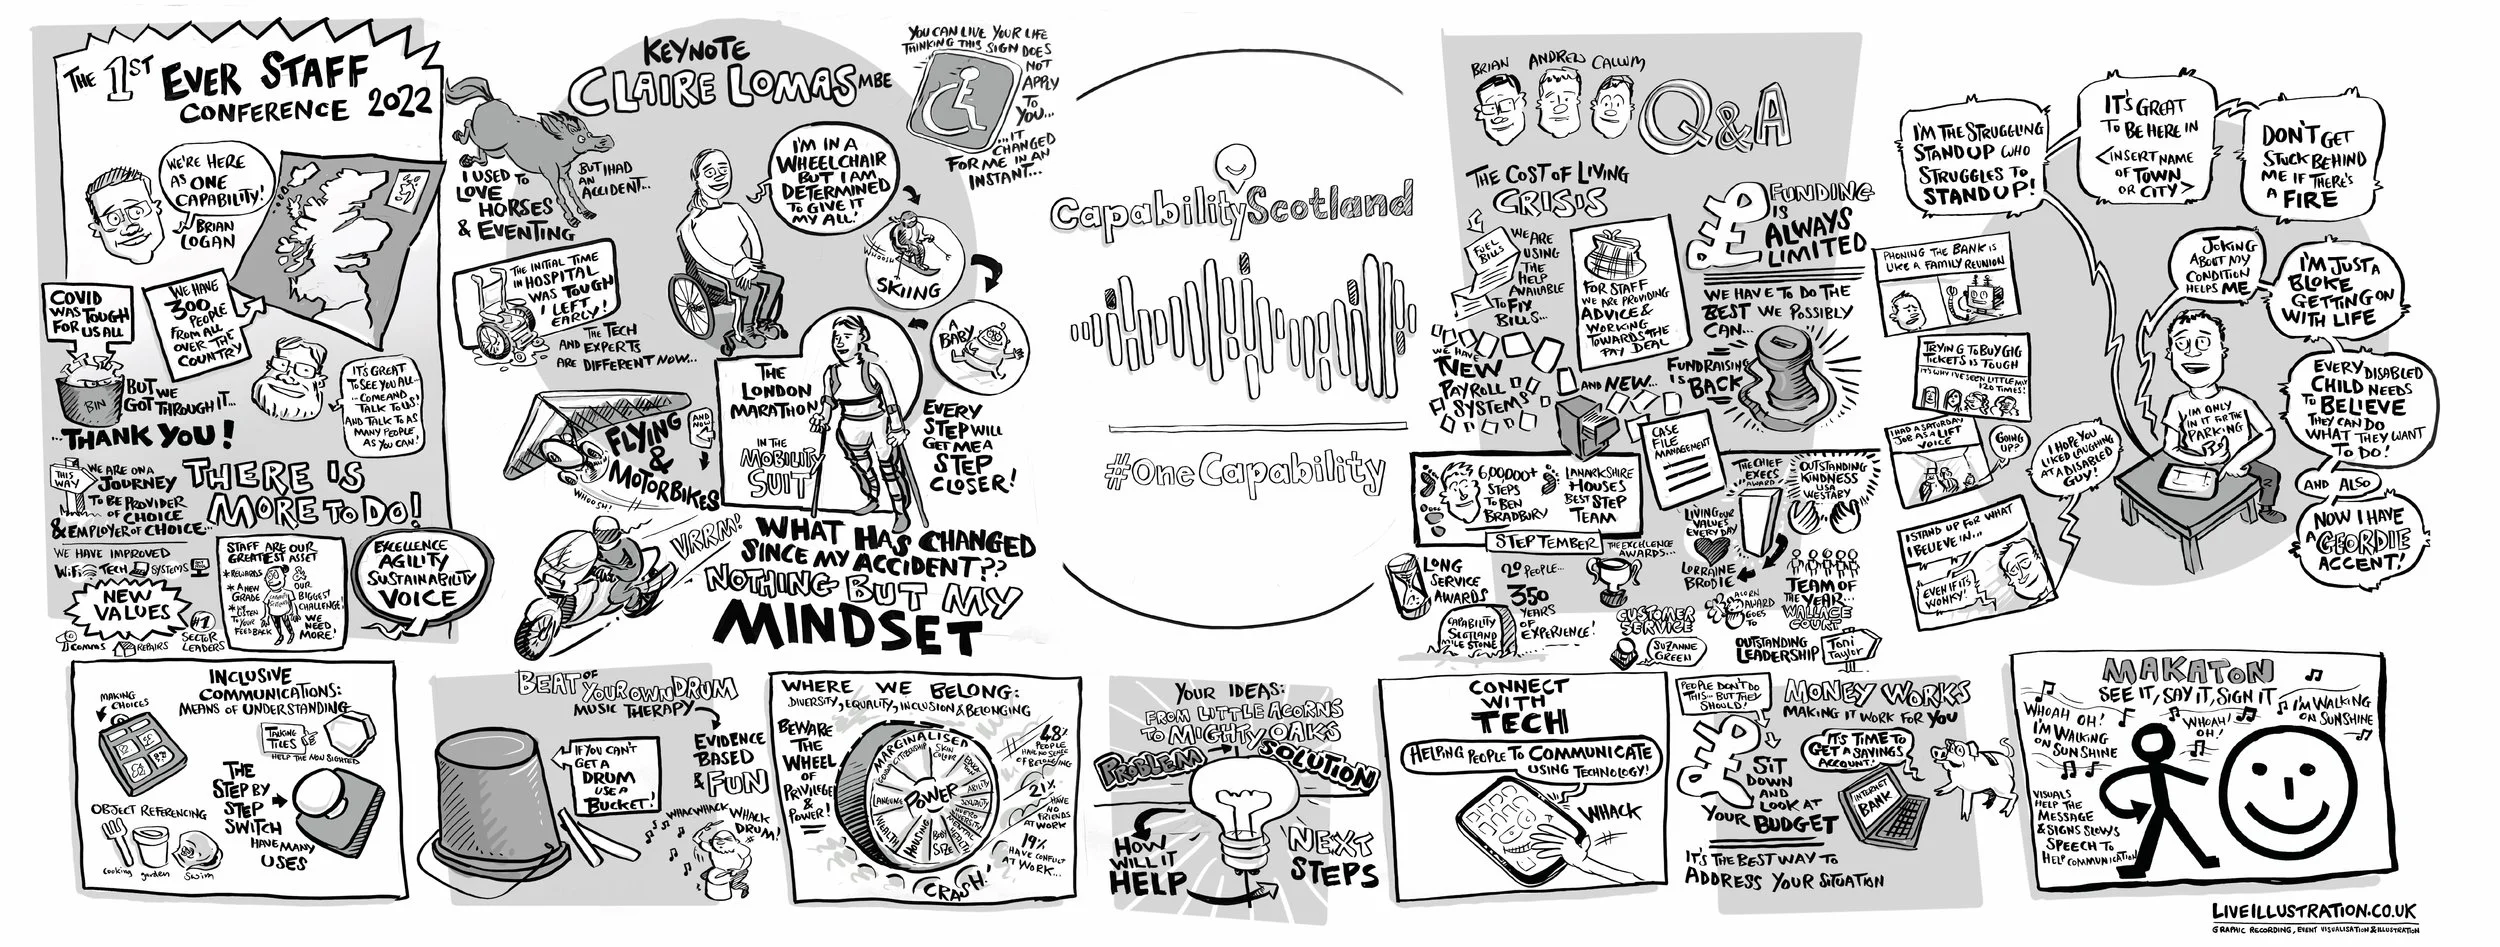 THE 1ST EVER STAFF
CONFERENCE 2022
WE'RE HERE
AS ONE
CAPABILITY!
BRIAN
LOGAN
COVID
WAS TOUGH
FOR US ALL
BIN
BUT WE
GOT THROUGH IT...
...THANK YOU!
WE HAVE
300
PEOPLE
FROM ALL
OVER THE
COUNTRY
IT'S GREAT
TO SEE YOU ALL...
...COME AND
TALK TO US!
AND TALK TO AS
MANY PEOPLE
AS YOU CAN!
THIS
WAY
WE ARE ON A
JOURNEY
TO BE PROVIDER
OF CHOICE
& EMPLOYER OF CHOICE...
THERE IS
MORE TO DO!
WE HAVE IMPROVED
WIFI TECH SYSTEMS
NEW
VALUES
#1
SECTOR
LEADERS
COMMS
REPAIRS
STAFF ARE OUR
GREATEST ASSET
* REWARDS
* A NEW
GRADE
* WE LISTEN
TO YOUR
FEEDBACK
OUR
BIGGEST
CHALLENGE!
WE
NEED
MORE!
EXCELLENCE
AGILITY
SUSTAINABILITY
VOICE
KEYNOTE
CLAIRE LOMAS MBE
I USED TO
LOVE
HORSES
& EVENTING
BUT I HAD
AN
ACCIDENT...
YOU CAN LIVE YOUR LIFE
THINKING THIS SIGN DOES
NOT
APPLY
TO
YOU...
...IT
CHANGED
FOR ME IN AN
INSTANT...
I'M IN A
WHEELCHAIR
BUT I AM
DETERMINED
TO GIVE IT
MY ALL!
THE INITIAL TIME
IN HOSPITAL
WAS TOUGH
I LEFT
EARLY!
THE TECH
AND EXPERTS
ARE DIFFERENT NOW...
WHOOSH
SKIING
A
BABY
THE
LONDON
MARATHON
IN THE
MOBILITY
SUIT
EVERY
STEP WILL
GET ME A
STEP
CLOSER!
AND
NOW
FLYING
&
MOTORBIKES
WHOOSH!
VRRM!
WHAT HAS CHANGED
SINCE MY ACCIDENT??
NOTHING BUT MY
MINDSET
CapabilityScotland
#OneCapability
BRIAN ANDREW CALLUM
Q&A
THE COST OF LIVING
CRISIS
FUEL
BILLS
WE ARE
USING
THE
HELP
AVAILABLE
TO FIX
BILLS...
FOR STAFF
WE ARE PROVIDING
ADVICE &
WORKING
TOWARDS THE
PAY DEAL
£
FUNDING
IS
ALWAYS
LIMITED
WE HAVE TO DO THE
BEST WE POSSIBLY
CAN...
FUNDRAISING
IS BACK
WE HAVE
NEW
PAYROLL
SYSTEMS
AND NEW...
CASE
FILE
MANAGEMENT
6,000,000+
STEPS
TO BEN
BRADBURY
LANARKSHIRE
HOUSES
BEST STEP
TEAM
STEPTEMBER
THE CHIEF
EXECS
AWARD
OUTSTANDING
KINDNESS
LISA
WESTBY
LIVING OUR
VALUES
EVERY DAY
LORRAINE
BRODIE
LONG
SERVICE
AWARDS
20 PEOPLE...
350
YEARS
OF
EXPERIENCE!
CAPABILITY
SCOTLAND
MILE STONE
THE EXCELLENCE
AWARDS...
CUSTOMER
SERVICE
SUZANNE
GREEN
TEAM OF
THE YEAR...
WALLACE
COURT
ACORN
AWARD
GOES
TO
OUTSTANDING
LEADERSHIP
Toni
Taylor
I'M THE STRUGGLING
STAND UP WHO
STRUGGLES TO
STAND UP!
IT'S GREAT
TO BE HERE IN
<INSERT NAME
OF TOWN
OR CITY>
DON'T GET
STUCK BEHIND
ME IF THERE'S
A FIRE
PHONING THE BANK IS
LIKE A FAMILY REUNION
TRYING TO BUY GIG
TICKETS IS TOUGH
IT'S WHY I'VE SEEN LITTLE MIX
120 TIMES!
I HAD A SATURDAY
JOB AS A LIFT
VOICE
GOING
UP?
I STAND UP FOR WHAT
I BELIEVE IN...
EVEN IF IT'S
WONKY!
I HOPE YOU
LIKED LAUGHING
AT A DISABLED
GUY!
JOKING
ABOUT MY
CONDITION
HELPS ME
I'M JUST A
BLOKE
GETTING ON
WITH LIFE
I'M ONLY
IN IT FOR THE
PARKING
EVERY DISABLED
CHILD NEEDS
TO BELIEVE
THEY CAN DO
WHAT THEY WANT
TO DO!
AND ALSO
NOW I HAVE
A GEORDIE
ACCENT!
INCLUSIVE
COMMUNICATIONS:
MEANS OF UNDERSTANDING
MAKING
CHOICES
TALKING
TILES
HELP THE NON SIGHTED
OBJECT REFERENCING
cooking garden swim
THE
STEP BY
STEP
SWITCH
HAVE MANY
USES
BEAT OF
YOUR OWN DRUM
MUSIC THERAPY
IF YOU CAN'T
GET A
DRUM
USE A
BUCKET!
EVIDENCE
BASED
& FUN
WHACK WHACK WHACK
DRUM!
WHERE WE BELONG:
DIVERSITY, EQUALITY, INCLUSION & BELONGING
BEWARE
THE
WHEEL
OF
PRIVILEGE
&
POWER!
MARGINALISED
POWER
CITIZENSHIP
SKIN
COLOUR
LANGUAGE
WEALTH
HOUSING
BODY
SIZE
MENTAL
HEALTH
NEURO
DIVERSITY
SEXUALITY
ABILITY
CRASH!
48%
PEOPLE
HAVE NO SENSE
OF BELONGING
21%
HAVE
NO
FRIENDS
AT WORK
19%
HAVE CONFLICT
AT WORK...
YOUR IDEAS:
FROM LITTLE ACORNS
TO MIGHTY OAKS
PROBLEM
SOLUTION
HOW
WILL IT
HELP
NEXT
STEPS
CONNECT
WITH
TECH
HELPING PEOPLE TO COMMUNICATE
USING TECHNOLOGY!
WHACK
PEOPLE DON'T DO
THIS... BUT THEY
SHOULD!
MONEY WORKS
MAKING IT WORK FOR YOU
£
SIT
DOWN
AND
LOOK AT
YOUR BUDGET
IT'S TIME TO
GET A SAVINGS
ACCOUNT!
INTERNET
BANK
IT'S THE BEST WAY TO
ADDRESS YOUR SITUATION
MAKATON
SEE IT, SAY IT, SIGN IT
WHOAH OH!
I'M WALKING
ON SUNSHINE
WHOAH!
OH!
I'M WALKING
ON SUNSHINE
VISUALS
HELP THE
MESSAGE
& SIGNS SLOWS
SPEECH TO
HELP COMMUNICATION
LIVEILLUSTRATION.CO.UK
GRAPHIC RECORDING, EVENT VISUALISATION & ILLUSTRATION